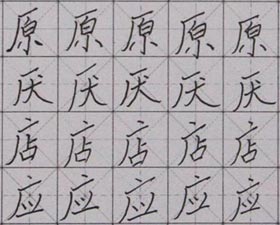 原原原原原
厌厌厌厌厌
店店店店店
应应应应应